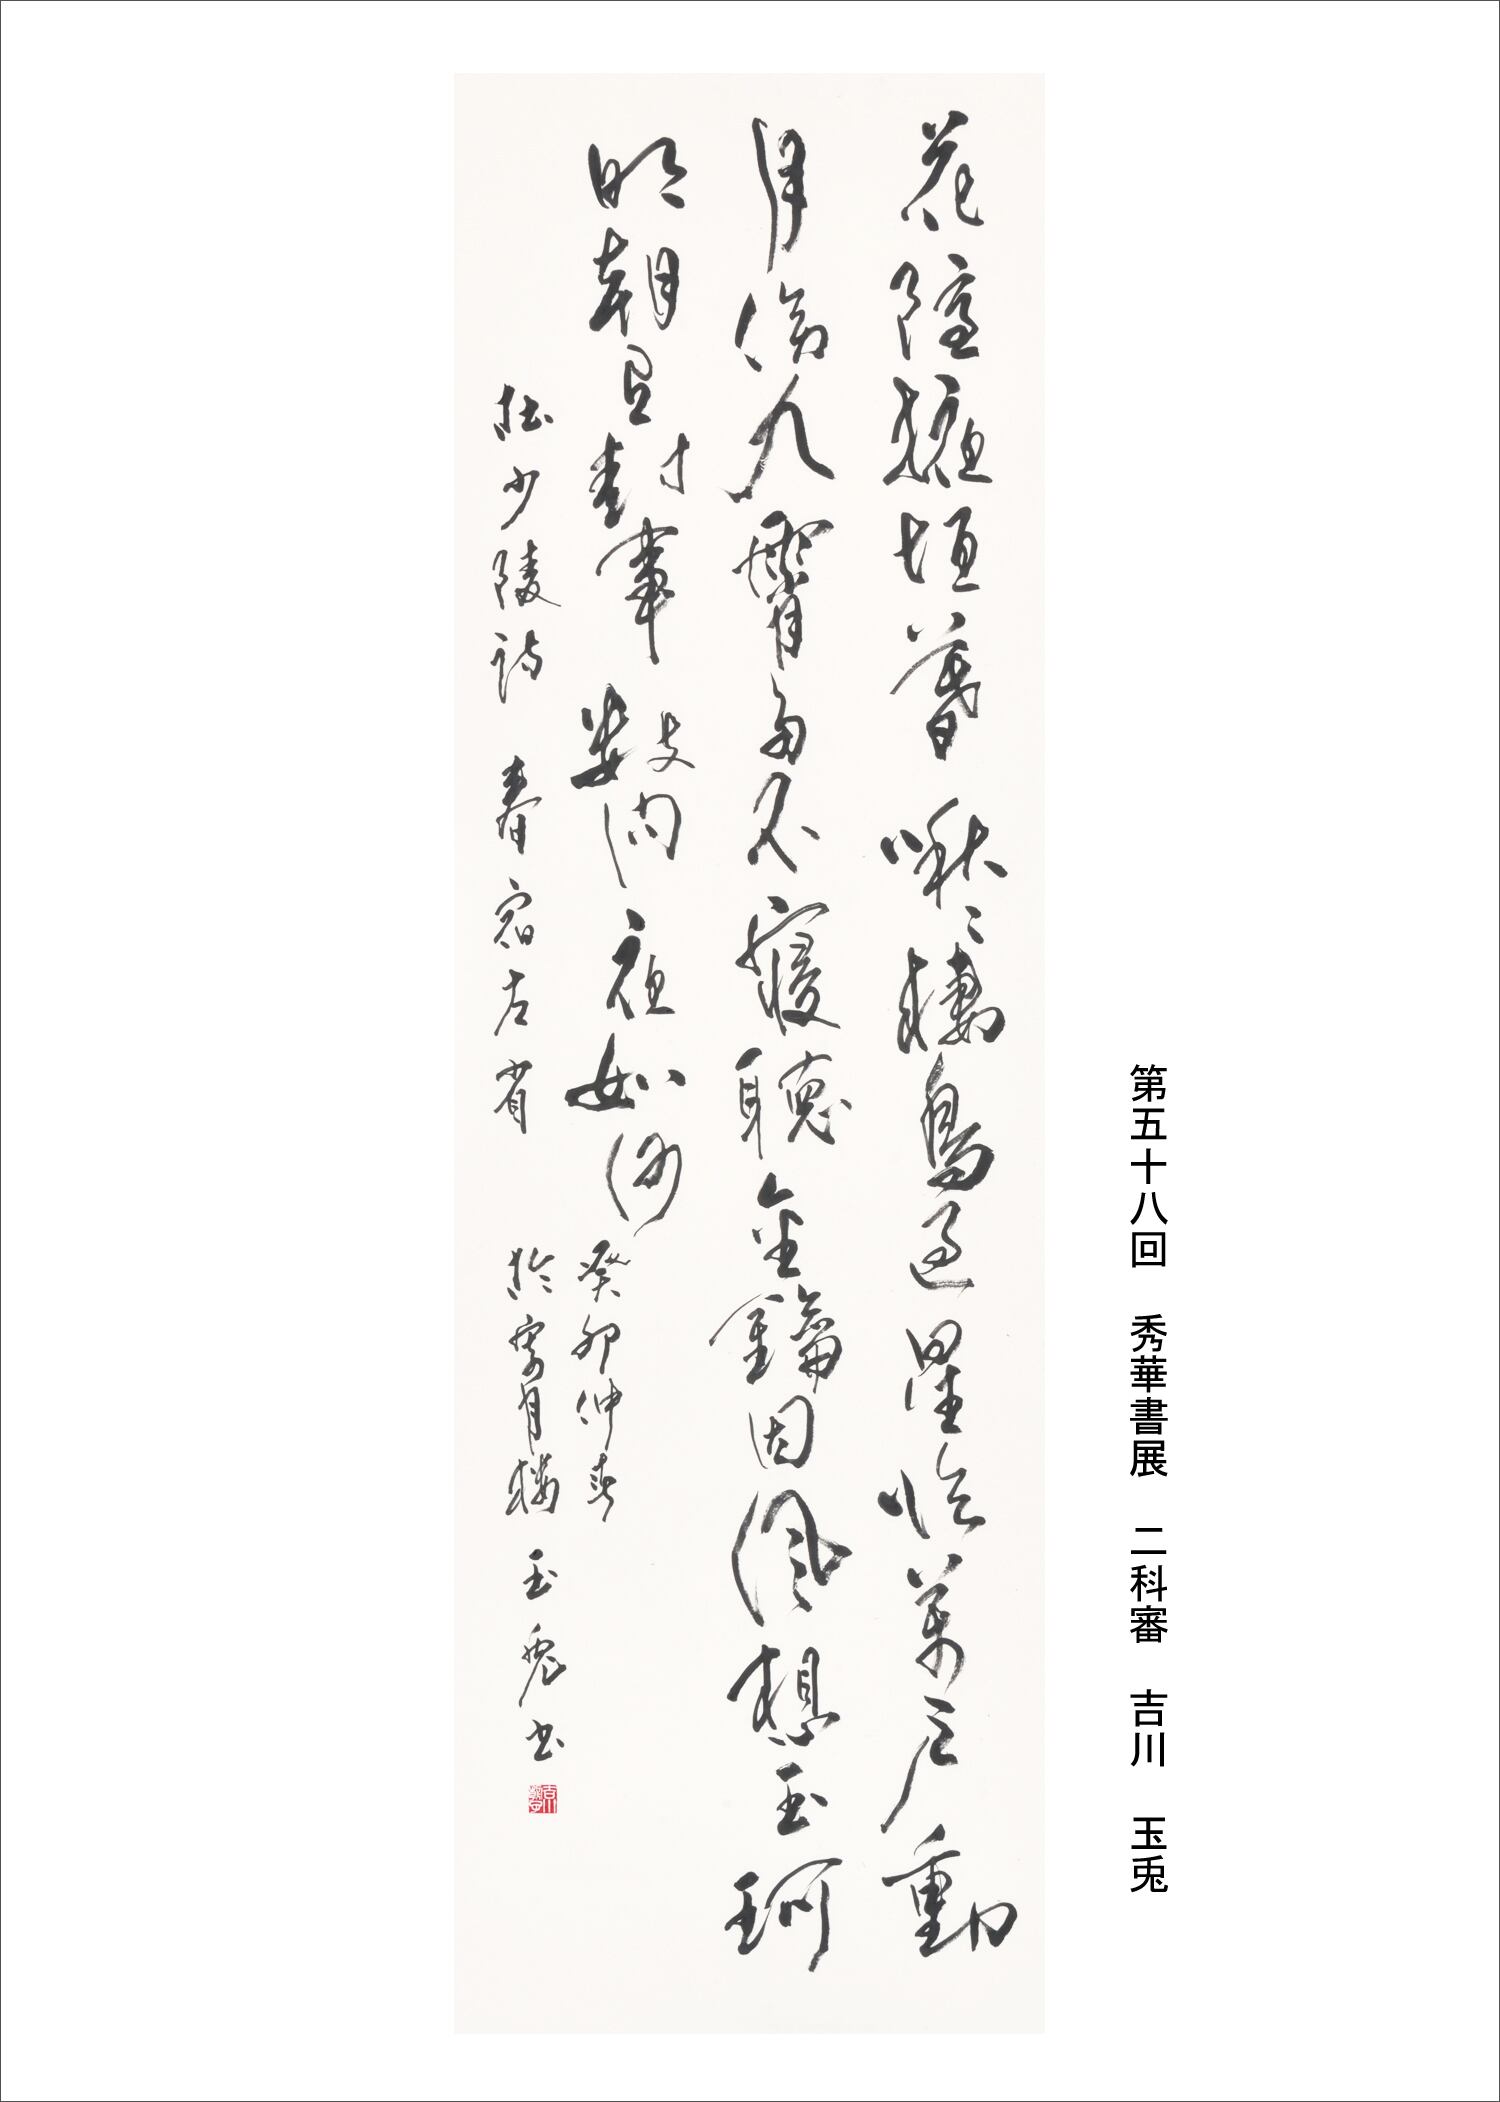 第五十八回　秀華書展　二科審　吉川　玉兎
花隱掖垣暮啾〻棲鳥過星臨萬戶動
月傍九霄多不寢聽金鑰因風想玉珂
明朝有封事數問夜如何
杜少陵詩　春宿左省
癸卯仲春
於月樓　玉兎書
吉川